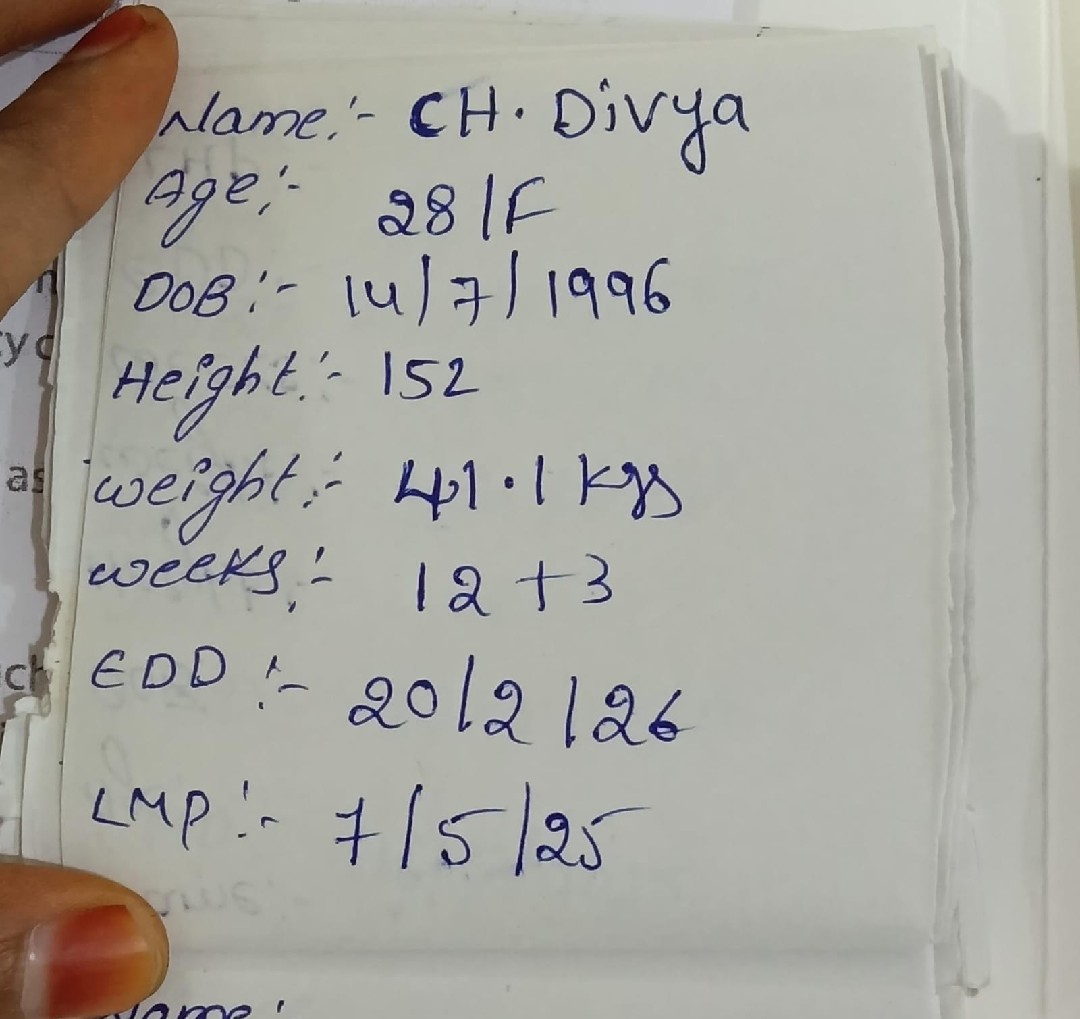 Name:- CH. Divya
Age:- 28/F
DOB:- 14/7/1996
Height:- 152
weight:- 41.1 kgs
weeks:- 12+3
EDD:- 20/2/26
LMP:- 7/5/25
Name: